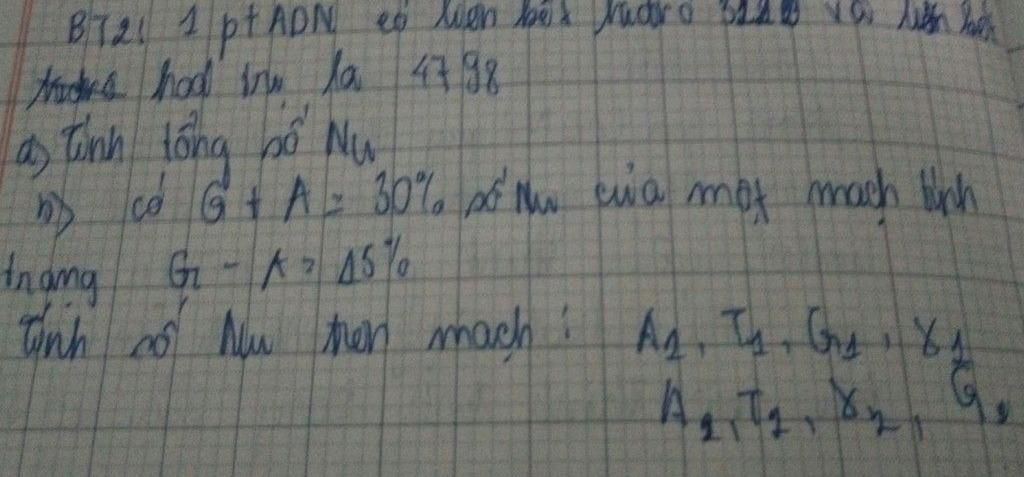 BT2: 1 pt ADN có liên kết hidro và liên kết
hoá trị là 4798
a) Tính tổng số Nu
b) có G + A = 30% số Nu của một mạch tính
trạng G - A = 15%
Tính số Nu trên mạch : A1, T1, G1, X1
A2, T2, X2, G2